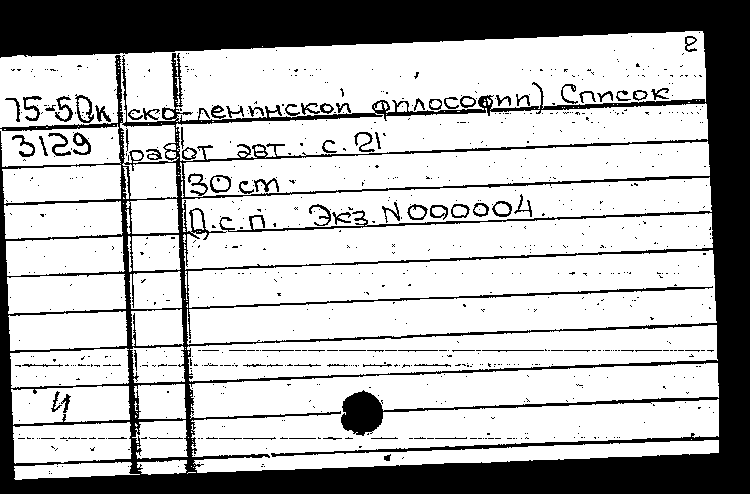 2
75-5Дк ско-ленинской философии). Список
3129 работ авт.: с. 21
30 cm.
Д.с.п. Экз. N000004.
И